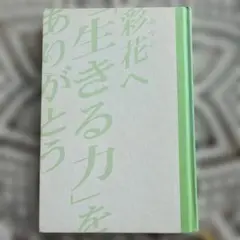 彩花へ
「生きる力」を
ありがとう